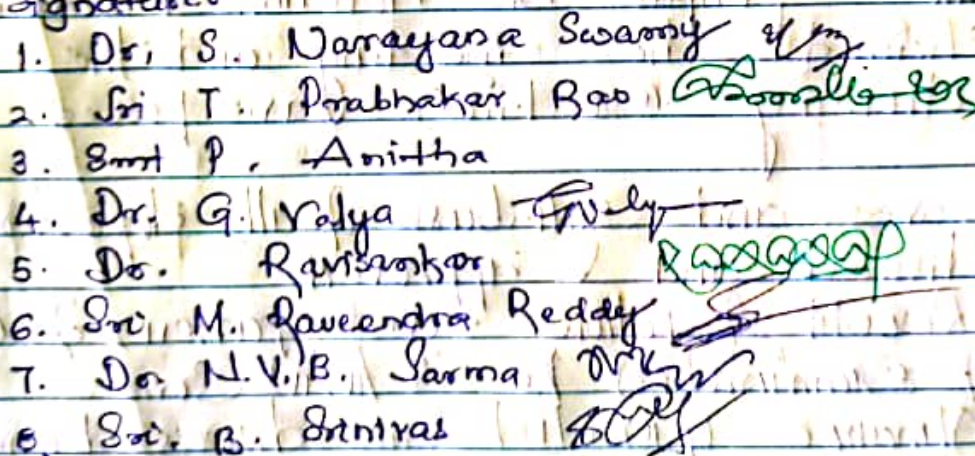 1. Dr, S. Narayana Swamy
2. Sri T. Prabhakar Rao
3. Smt P. Anitha
4. Dr. G. Valya
5. Dr. Ravisankar
6. Sri M. Raveendra Reddy
7. Dr. N.V.B. Sarma
8. Sri. B. Srinivas